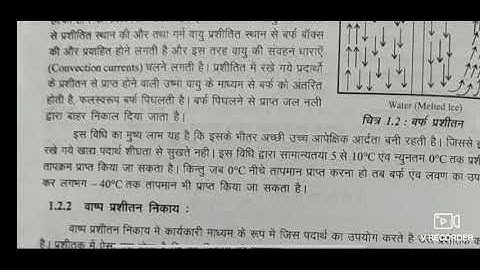 से प्रशीतित स्थान की और तथा गर्म वायु प्रशीतित स्थान से बर्फ बॉक्स
की और प्रवाहित होने लगती है और इस तरह वायु की संवहन धाराएँ
(Convection currents) चलने लगती है। प्रशीतित में रखे गये प्रदार्थो
के प्रशीतन से प्राप्त होने वाली उष्मा वायु के माध्यम से बर्फ को अंतरित
होती है, फलस्वरूप बर्फ पिघलती है। बर्फ पिघलने से प्राप्त जल नली
द्वारा बाहर निकाल दिया जाता है।
Water (Melted Ice)
चित्र 1.2 : बर्फ प्रशीतन
इस विधि का मुख्य लाभ यह है कि इसके भीतर अच्छी उच्च आपेक्षिक आर्दता बनी रहती है। जिससे
रखे गये खाद्य पदार्थ शीघ्रता से सुखते नही। इस विधि द्वारा सामान्यतया 5 से 10°C एवं न्युनतम 0°C तक
तापक्रम प्राप्त किया जा सकता है। किन्तु जब 0°C नीचे तापमान प्राप्त करना हो तब बर्फ एंव लवण का
कर लगभग – 40°C तक तापमान भी प्राप्त किया जा सकता है।
1.2.2 वाष्प प्रशीतन निकाय :
वाष्प प्रशीतन निकाय मे कार्यकारी माध्यम के रूप में जिस पदार्थ का उपयोग करते है
V.RECORDER